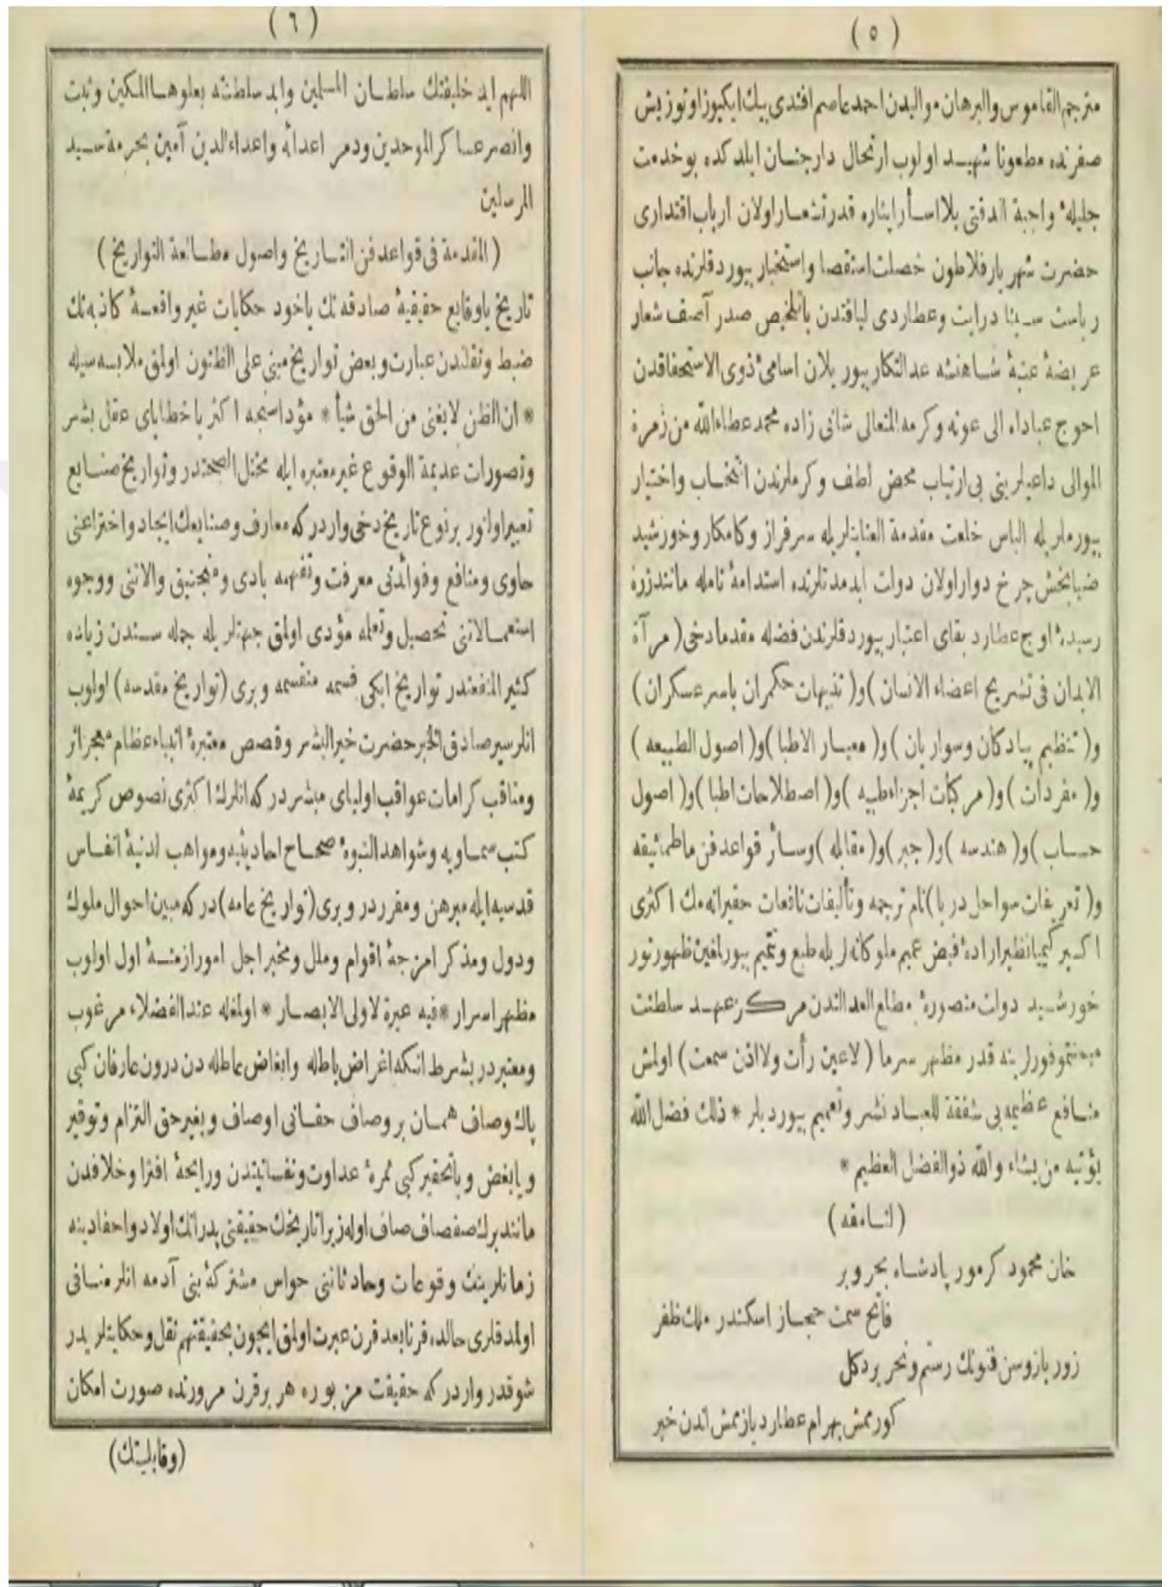 ( ٥ )
مترجم القاموس والبرهان مواليدن احمد عاصم افندی بيك ايكيوز اوتوز بش
صفرنده مطعونا شهيد اولوب ارتحال دار جنان ايلدكده بو خدمت
جليلهٔ واجبة الدقتی بلا اسأر ايثاره قدرتشعار اولان ارباب اقتداری
حضرت شهريار فلاطون خصلت استقصا واستخبار بيوردقلرنده جانب
رياست سينا درايت وعطاردی لياقتدن باتلخيص صدر آصف شعار
عريضهٔ عتبهٔ شاهنشه عدالتكار بيوريلان اسامیٔ ذوی الاستحقاقدن
احوج عباد الله الی عونه وكرمه المتعالی شانی زاده محمد عطاءالله من زمرة
الموالی داعيلرينی بی ارتياب محض لطف وكرملرندن انتخاب واختيار
بيورملريله الباس خلعت مقدمة العنايتلريله سرفراز وكامكار وخورشيد
ضيابخش چرخ دوار اولان دولت ابدمدتلرنده استدامهٔ نامله مانند ذره
رسيدهٔ اوج عطارد بقای اعتبار بيوردقلرندن فضله مقدما دخی ( مرآة
الابدان فی تشريح اعضاء الانسان ) و( تنبيهات حكمران باسرعسكران )
و( تنظيم پيادكان وسواريان ) و( معيار الاطبا ) و( اصول الطبيعه )
و( مفردات ) و( مركبات اجزاء طبيه ) و( اصطلاحات اطبا ) و( اصول
حساب ) و( هندسه ) و( جبر ) و( مقابله ) وسائر قواعد فن ماطماتيقه
و( تعريفات سواحل دريا ) نام ترجمه وتأليفات نافعات حقيرانه مك اكثری
اكسير كيميا نظير ارادهٔ فيض عميم ملوكانه لريله طبع وتتميم بيورلغين ظهور نور
خورشيد دولت منصورهٔ مطلع العدالتدن مركز عهد سلطنت
ميمنتموفورلرينه قدر مظهر سرما ( لاعين رأت ولا اذن سمعت ) اولمش
منافع عظيمه بی شفقة للعباد نشر وتعميم بيورديلر * ذلك فضل الله
يؤتيه من يشاء والله ذوالفضل العظيم *
( لنامقه )
خان محمود كرمور پادشاه بحر وبر
فاتح سمت حجاز اسكندر ملك ظفر
زور بازوسن قنونك رستم ونحرير دكل
كورممش بهرام عطارد يازممش اندن خبر
( ٦ )
اللهم ايد خليفتك سلطان المسلمين وابد سلطنته بعلوها المكين وثبت
وانصر عساكر الموحدين ودمر اعدائه واعداء الدين آمين بحرمة سيد
المرسلين
( المقدمة فی قواعد فن التاريخ واصول مطالعة التواريخ )
تاريخ ياوقايع حقيقيهٔ صادقه نك ياخود حكايات غير واقعهٔ كاذبه نك
ضبط ونقلندن عبارت وبعض تواريخ مبنی علی الظنون اولمق ملابسه سيله
* ان الظن لايغنی من الحق شيأ * مؤداسنجه اكثريا خطايای عقل بشر
وتصورات عديمة الوقوع غير معتبره ايله مختل الصحتدر وتواريخ صنايع
تعبير اولنور بر نوع تاريخ دخی واردر كه معارف وصنايعك ايجاد واختراعنی
حاوی ومنافع وفوائدنی معرفت وتفهمه بادی ومنجنيق والاتنی ووجوه
استعمالاتنی تحصيل وتعلمه مؤدی اولمق جهتلريله جمله سندن زياده
كثير المنفعتدر تواريخ ايكی قسمه منقسمه وبری ( تواريخ مقدسه ) اولوب
انلر سير صادق الخبر حضرت خير البشر وقصص معتبرهٔ انبياء عظام معجزاثر
ومناقب كرامات عواقب اوليای مبشردر كه انلرك اكثری نصوص كريمهٔ
كتب سماويه وشواهد النبوهٔ صحاح احاديثيه ومواهب لدنيهٔ انفاس
قدسيه ايله مبرهن ومقرردر وبری ( تواريخ عامه ) در كه مبين احوال ملوك
ودول ومذكر امزجهٔ اقوام وملل ومخبر اجل امور ازمنهٔ اول اولوب
مظهر اسرار * فيه عبرة لاولی الابصار * اولمغله عند الفضلاء مرغوب
ومعتبردر بشرط انكه اغراض باطله وابغاض عاطله دن درون عارفان كبی
پاك وصاف همان بر وصاف حقانی اوصاف وبغير حق التزام وتوقير
ويا بغض ويا تحقير كبی ثمرهٔ عداوت ونفسانيتدن ورايحهٔ افترا وخلافدن
مانند برك صفصاف صاف اوله زيرا تاريخك حقيقتی پدرانك اولاد واحفادينه
زمانلرينك وقوعات وحادثاتنی حواس مشتركهٔ بنی آدمه انلر منافی
اولمدقلری حالده قرنا بعد قرن عبرت اولمق ايچون بحقيقتهم نقل وحكايتلريدر
شوقدر واردر كه حقيقت مزبوره هر بر قرن مرورنده صورت امكان
( وقابليتك )